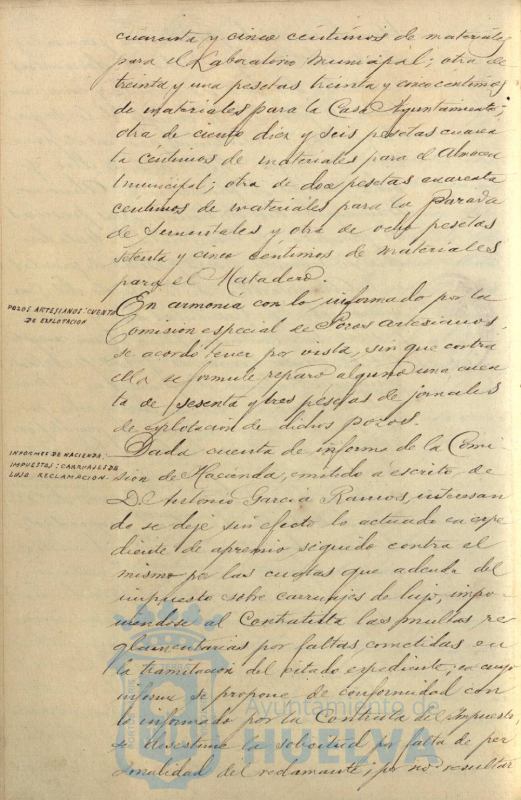 cuarenta y cinco céntimos de materiales
para el Laboratorio Municipal; otra de
treinta y una pesetas treinta y cinco céntimos
de materiales para la Casa Ayuntamiento;
otra de ciento diez y seis pesetas cuaren
ta céntimos de materiales para el Almacen
municipal; otra de doce pesetas cuarenta
centimos de materiales para la Parada
de Sementales y otra de ocho pesetas
setenta y cinco centimos de materiales
para el Matadero.
POZOS ARTESIANOS: CUENTA
DE EXPLOTACION
En armonía con lo informado por la
Comision especial de Pozos artesianos,
se acordó tener por vista, sin que contra
ella se formule reparo alguno una cuen
ta de sesenta y tres pesetas de jornales
de explotacion de dichos pozos.
INFORMES DE HACIENDA.
IMPUESTOS: CARRUAJES DE
LUJO RECLAMACION
Dada cuenta de informe de la Comi
sion de Hacienda, emitido á escrito de
D. Antonio Garcia Ramos, interesan
do se deje sin efecto lo actuado en expe
diente de apremio seguido contra el
mismo por las cuotas que adeuda del
impuesto sobre carruajes de lujo, impo
niendose al Contratista las multas re
glamentarias por faltas cometidas en
la tramitacion del citado expediente, en cuyo
informe se propone de conformidad con
lo informado por la Contrata del Impuesto
se desestime la solicitud por falta de per
sonalidad del reclamante; por no resultar
Ayuntamiento de
HUELVA